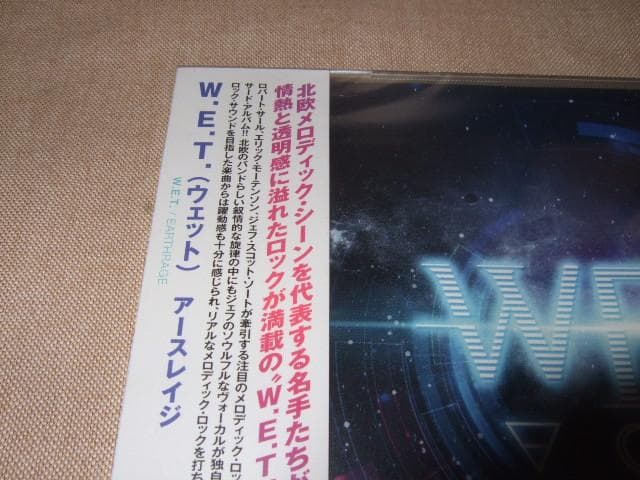 北欧メロディック・シーンを代表する名手たちが
情熱と透明感に溢れたロックが満載の"W.E.T
ロバート・サール、エリック・モーテンソン、ジェフ・スコット・ソートが牽引する注目のメロディック・ロッ
サード・アルバム!! 北欧のバンドらしい叙情的な旋律の中にもジェフのソウルフルなヴォーカルが独自
ロック・サウンドを目指した楽曲からは躍動感も十分に感じられ、リアルなメロディック・ロックを打ち
W.E.T.(ウェット) アースレイジ
W.E.T. / EARTHRAGE
WE